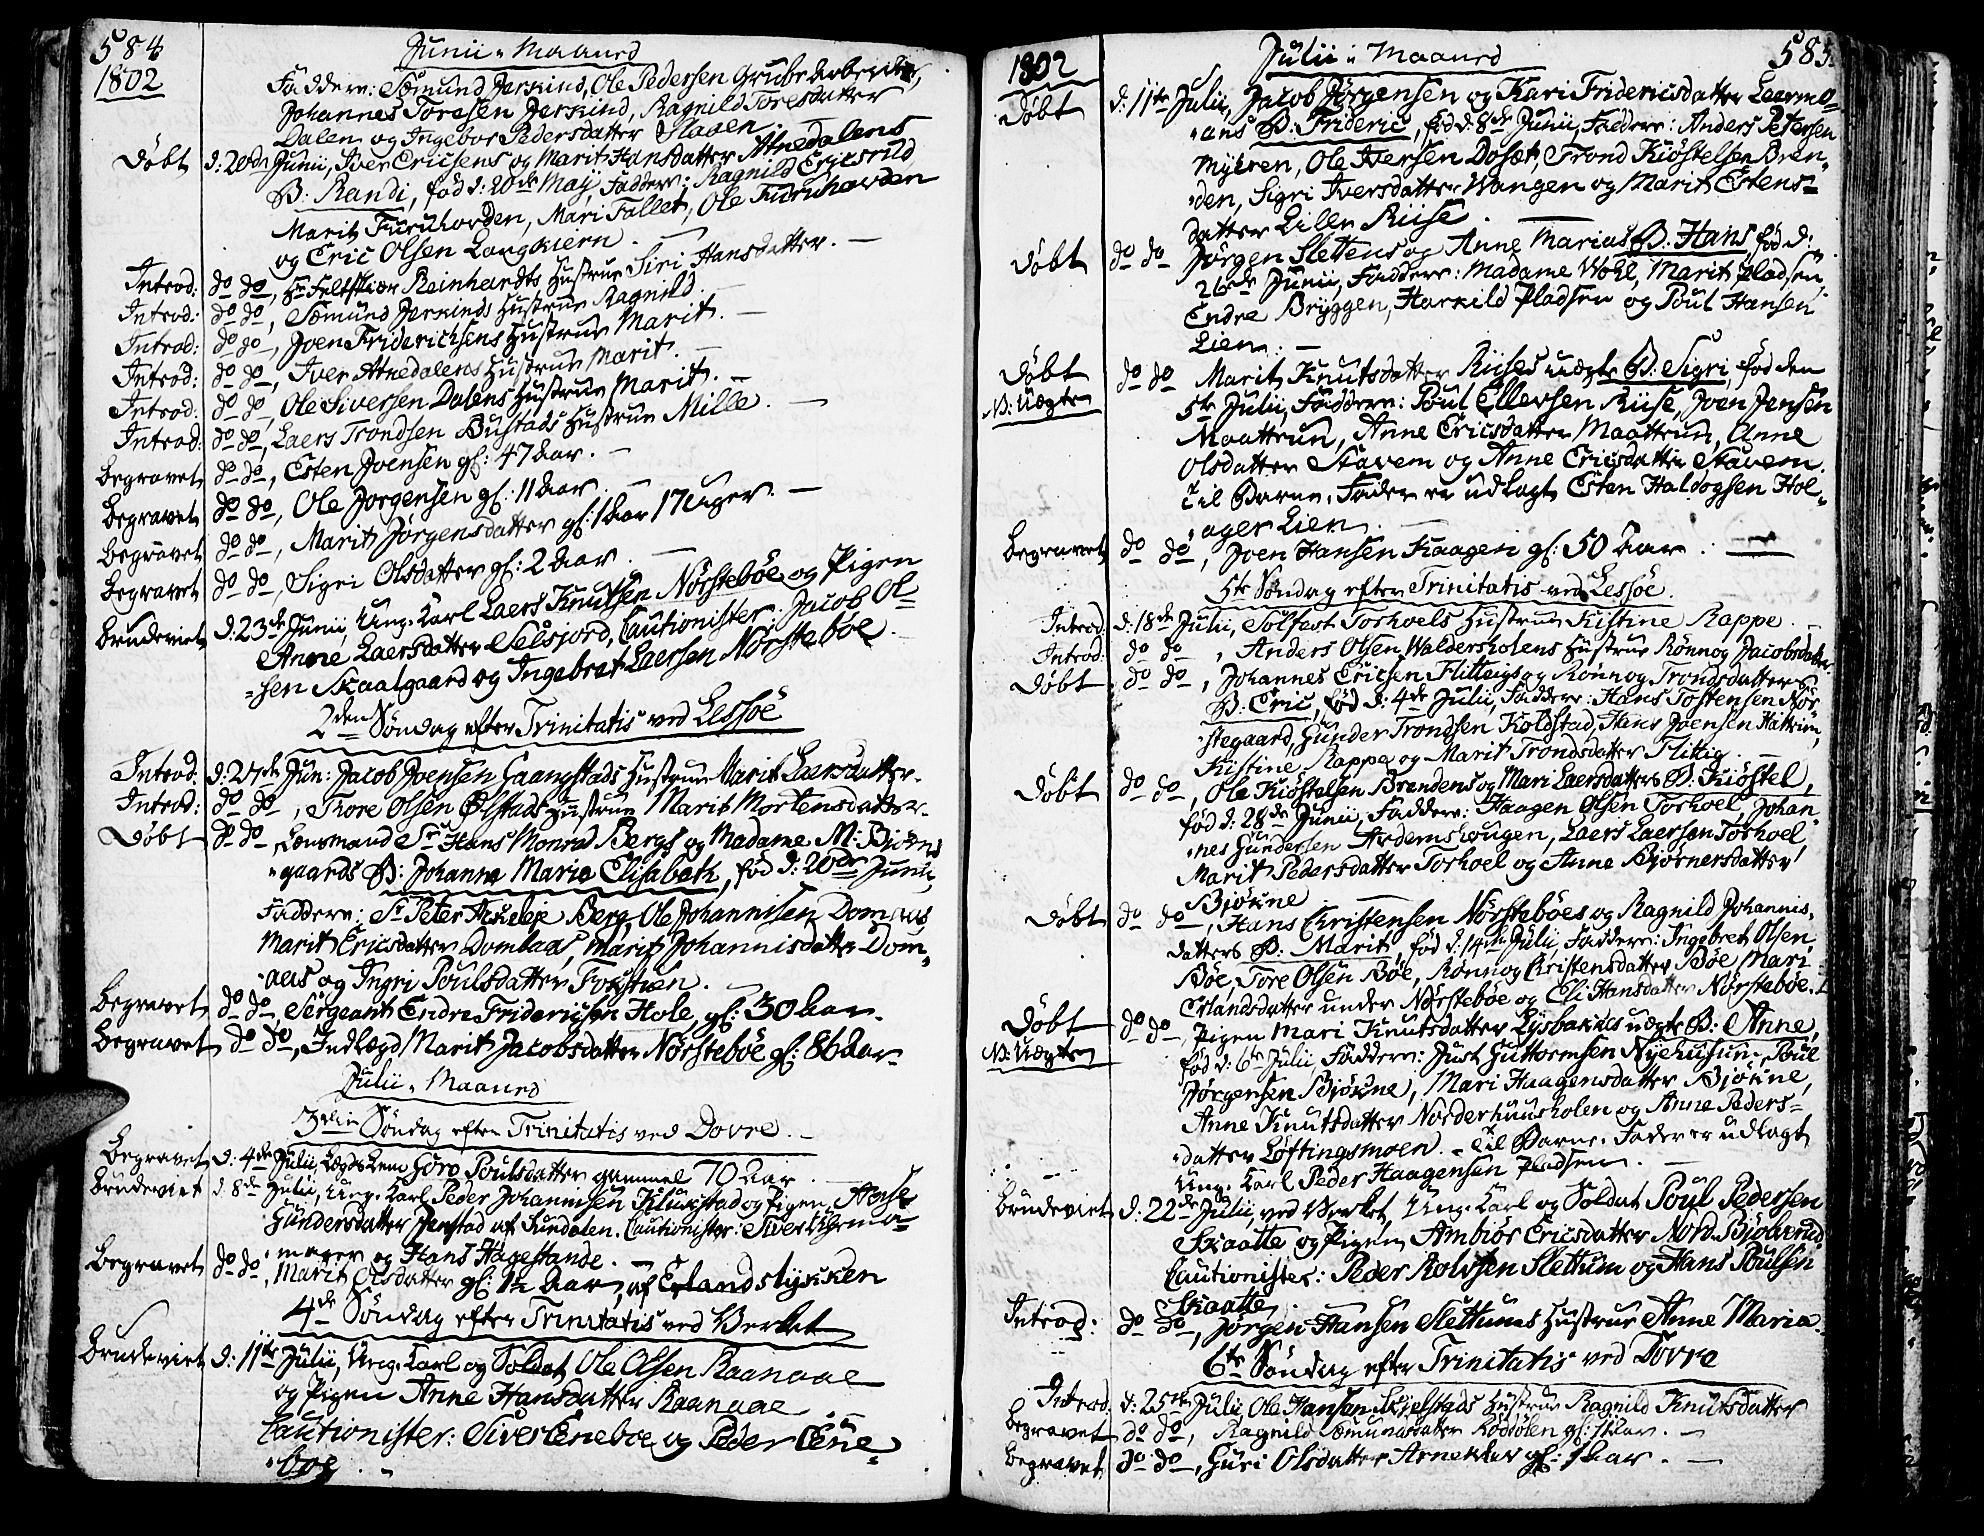 584
1802
Junii Maaned
Faddere: Sæmund Jerkind, Ole Pedersen Grube Arbeider,
Johannes Toresen Jerkind, Ragnild Toresdatter
Dalen og Ingebor Pedersdatter Slaaen.
Døbt d: 20de Junii, Iver Ericsens og Marit Hansdatter Atnedalens
B: Randi, fød d: 20de May, Faddere: Ragnild
Marit Furuhovden, Mari Fallet, Ole Furuhovden
og Eric Olsen Langkiern.
Introd: do do, Hr Feltskiær Reinhardts Hustrue Siri Hansdatter.
Introd: do do, Sæmund Jerkinds Hustrue Ragnild.
Introd: do do, Joen Friderichsens Hustrue Marit.
Introd: do do, Iver Atnedalens Hustrue Marit.
Introd: do do, Ole Siversen Dalens Hustrue Marit.
Introd: do do, Laers Trondsen Bustads Hustrue Mille.
Begravet do do, Esten Joensen gl: 47 Aar.
Begravet do do, Ole Jorgensen gl: 11 Aar.
Begravet do do, Marit Jørgensdatter gl: 1 Aar 17 Uger.
Begravet do do, Sigri Olsdatter gl: 2 Aar.
Brudeviet d: 23de Junii, Ung-Karl Laers Knutsen Nørstebøe og Pigen
Anne Laersdatter Selsjord, Cautionister: Jacob Ol=
=sen Skaalgaard og Ingebret Laersen Nørstebøe.
2den Søndag efter Trinitatis ved Lessøe
Introd. d: 27de Jun: Jacob Joensen Gaangstads Hustrue Marit Laersdatter.
Introd: do do, Thore Olsen Ølstads Hustrue Marit Mortensdatter.
Døbt do do, Lensmand Sr Hans Monrad Bergs og Madame M: Biørns
=gaards B: Johanna Maria Elisabeth, fød d: 20de Junii,
Faddere: Sr Peter Berg, Ole Johannisen Domaas
Marit Ericsdatter Dombaas, Marit Johannisdatter Dom=
=aas og Ingri Poulsdatter Fokstuen.
Begravet do do, Sergeant Endre Fridericsen Hole, gl: 30 Aar.
Begravet do do, Indlægd Marit Jacobsdatter Nørstebøe gl: 86 Aar.
Julii Maaned
3die Søndag efter Trinitatis ved Dovre.
Begravet d: 4de Julii, Lægds Lem Goro Poulsdatter gammel 70 Aar.
Brudeviet d. 8de Julii, Ung-Karl Peder Johannisen Kilukstad og Pigen
Gundersdatter Jenstad af Sundalen. Cautionister: Siver
=mager og Hans Hagestande.
Begravet do do, Marit Olsdatter gl: 1½ Aar, af Erlandstykken
4de Søndag efter Trinitatis ved Verket
Brudeviet d: 11te Julii, Ung-Karl og Soldat Ole Olsen Raanaae
og Pigen Anne Hansdatter Raanaae
Cautionister: Siver Enebøe og Peder Ene=
=boe.
1802
Julii Maaned
585
Døbt d: 11te Julii, Jacob Jørgensen og Kari Fridericsdatter Laermo=
=ens B: Frideric, fød d: 8de Junii, Faddere: Anders Petersen
Myhren, Ole Iversen Dosæt, Trond Kiøstelsen Bren=
=den, Sigri Iversdatter Wangen og Marit Estens=
datter Lille Riise.
Døbt do do Jørgen Slettens og Anne Marias B: Hans fød d:
26de Junii, Faddere: Madame Wohl, Marit Pladsen,
Endre Bryggen, Harkild Pladsen og Poul Hansen
Lien.
Døbt do do Marit Knutsdatter Riises uægte B: Sigri, fød den
N: Uægten 5te Julii, Faddere: Poul Ellevsen Riise, Joen Jensen
Maattrun, Anne Ericsdatter Maattrun, Anne
Olsdatter Stavem og Anne Ericsdatter Stavem.
Til Barne-Fader er udlagt Esten Haldogsen Hol=
=ager Lien.
Begravet do do, Joen Hansen Kaageri gl: 50 Aar.
5te Søndag efter Trinitatis ved Lessøe.
Introd: d: 18de Julii, Solfest Torhoels Hustrue Kistine Rappe.
Introd: do do, Anders Olsen Waldersholens Hustrue Rønnog Jacobsdatter
Døbt do do, Johannes Ericsen Flittigs og Rønnog Trondsdatters
B: Eric, fød d: 4de Julii, Faddere: Hans Tostensen Nør=
=stegaard, Gunder Trondsen Koldstad, Hans Joensen Hattrem,
Kistine Rappe og Marit Trondsdatter Flittig.
Døbt do do, Ole Kiøstelsen Brendens og Mari Laersdatters B: Kiøstel,
fød d: 28de Junii, Faddere: Haagen Olsen Torhoel, Johan=
=nes Gundersen Ardemshougen, Laers Laersen Torhoel
Marit Pedersdatter Torhoel og Anne Bjørnersdatter
Bjøkne
Døbt do do, Hans Christensen Nørstebøes og Ragnild Johannis=
datters B: Marit, fød d: 14de Julii, Faddere: Ingebret Olsen
Bøe, Tore Olsen Bøe, Rønnog Christensdatter Bøe, Mari
Erlandsdatter under Nørstebøe og Eli Hansdatter Nørstebøe.
Døbt do do, Pigen Mari Knutsdatter Lysbakkes uægte B: Anne,
N: Uægten fød d: 6te Julii, Faddere: Just Guttormsen Nyehusun, Poul
Jørgensen Bjøkne, Mari Haagensdatter Bjøkne,
Anne Knutsdatter Norderhuusholen og Anne Peders=
=datter Løftingsmoen. Til Barne-Fader er udlagt
Ung-Karl Peder Haagensen Pladsen.
Brudeviet d: 22de Julii, ved Verket, Ung-Karl og Soldat Poul Pedersen
Skaatte og Pigen Ambiør Ericsdatter Nord-Bjøkerud
Cautionister: Peder Rolvsen Slettum og Hans Poulsen
Skaatte.
Introd: do do, Jørgen Hansen Slettums Hustrue Anne Maria.
6te Søndag efter Trinitatis ved Dovre
Introd. d: 25de Julii Ole Hansen Skielstads Hustrue Ragnild Knutsdatter
Begravet do do, Ragnild Sæmundsdatter gl: 1 Aar.
Begravet do do, Guri Olsdatter gl: 1 Aar.